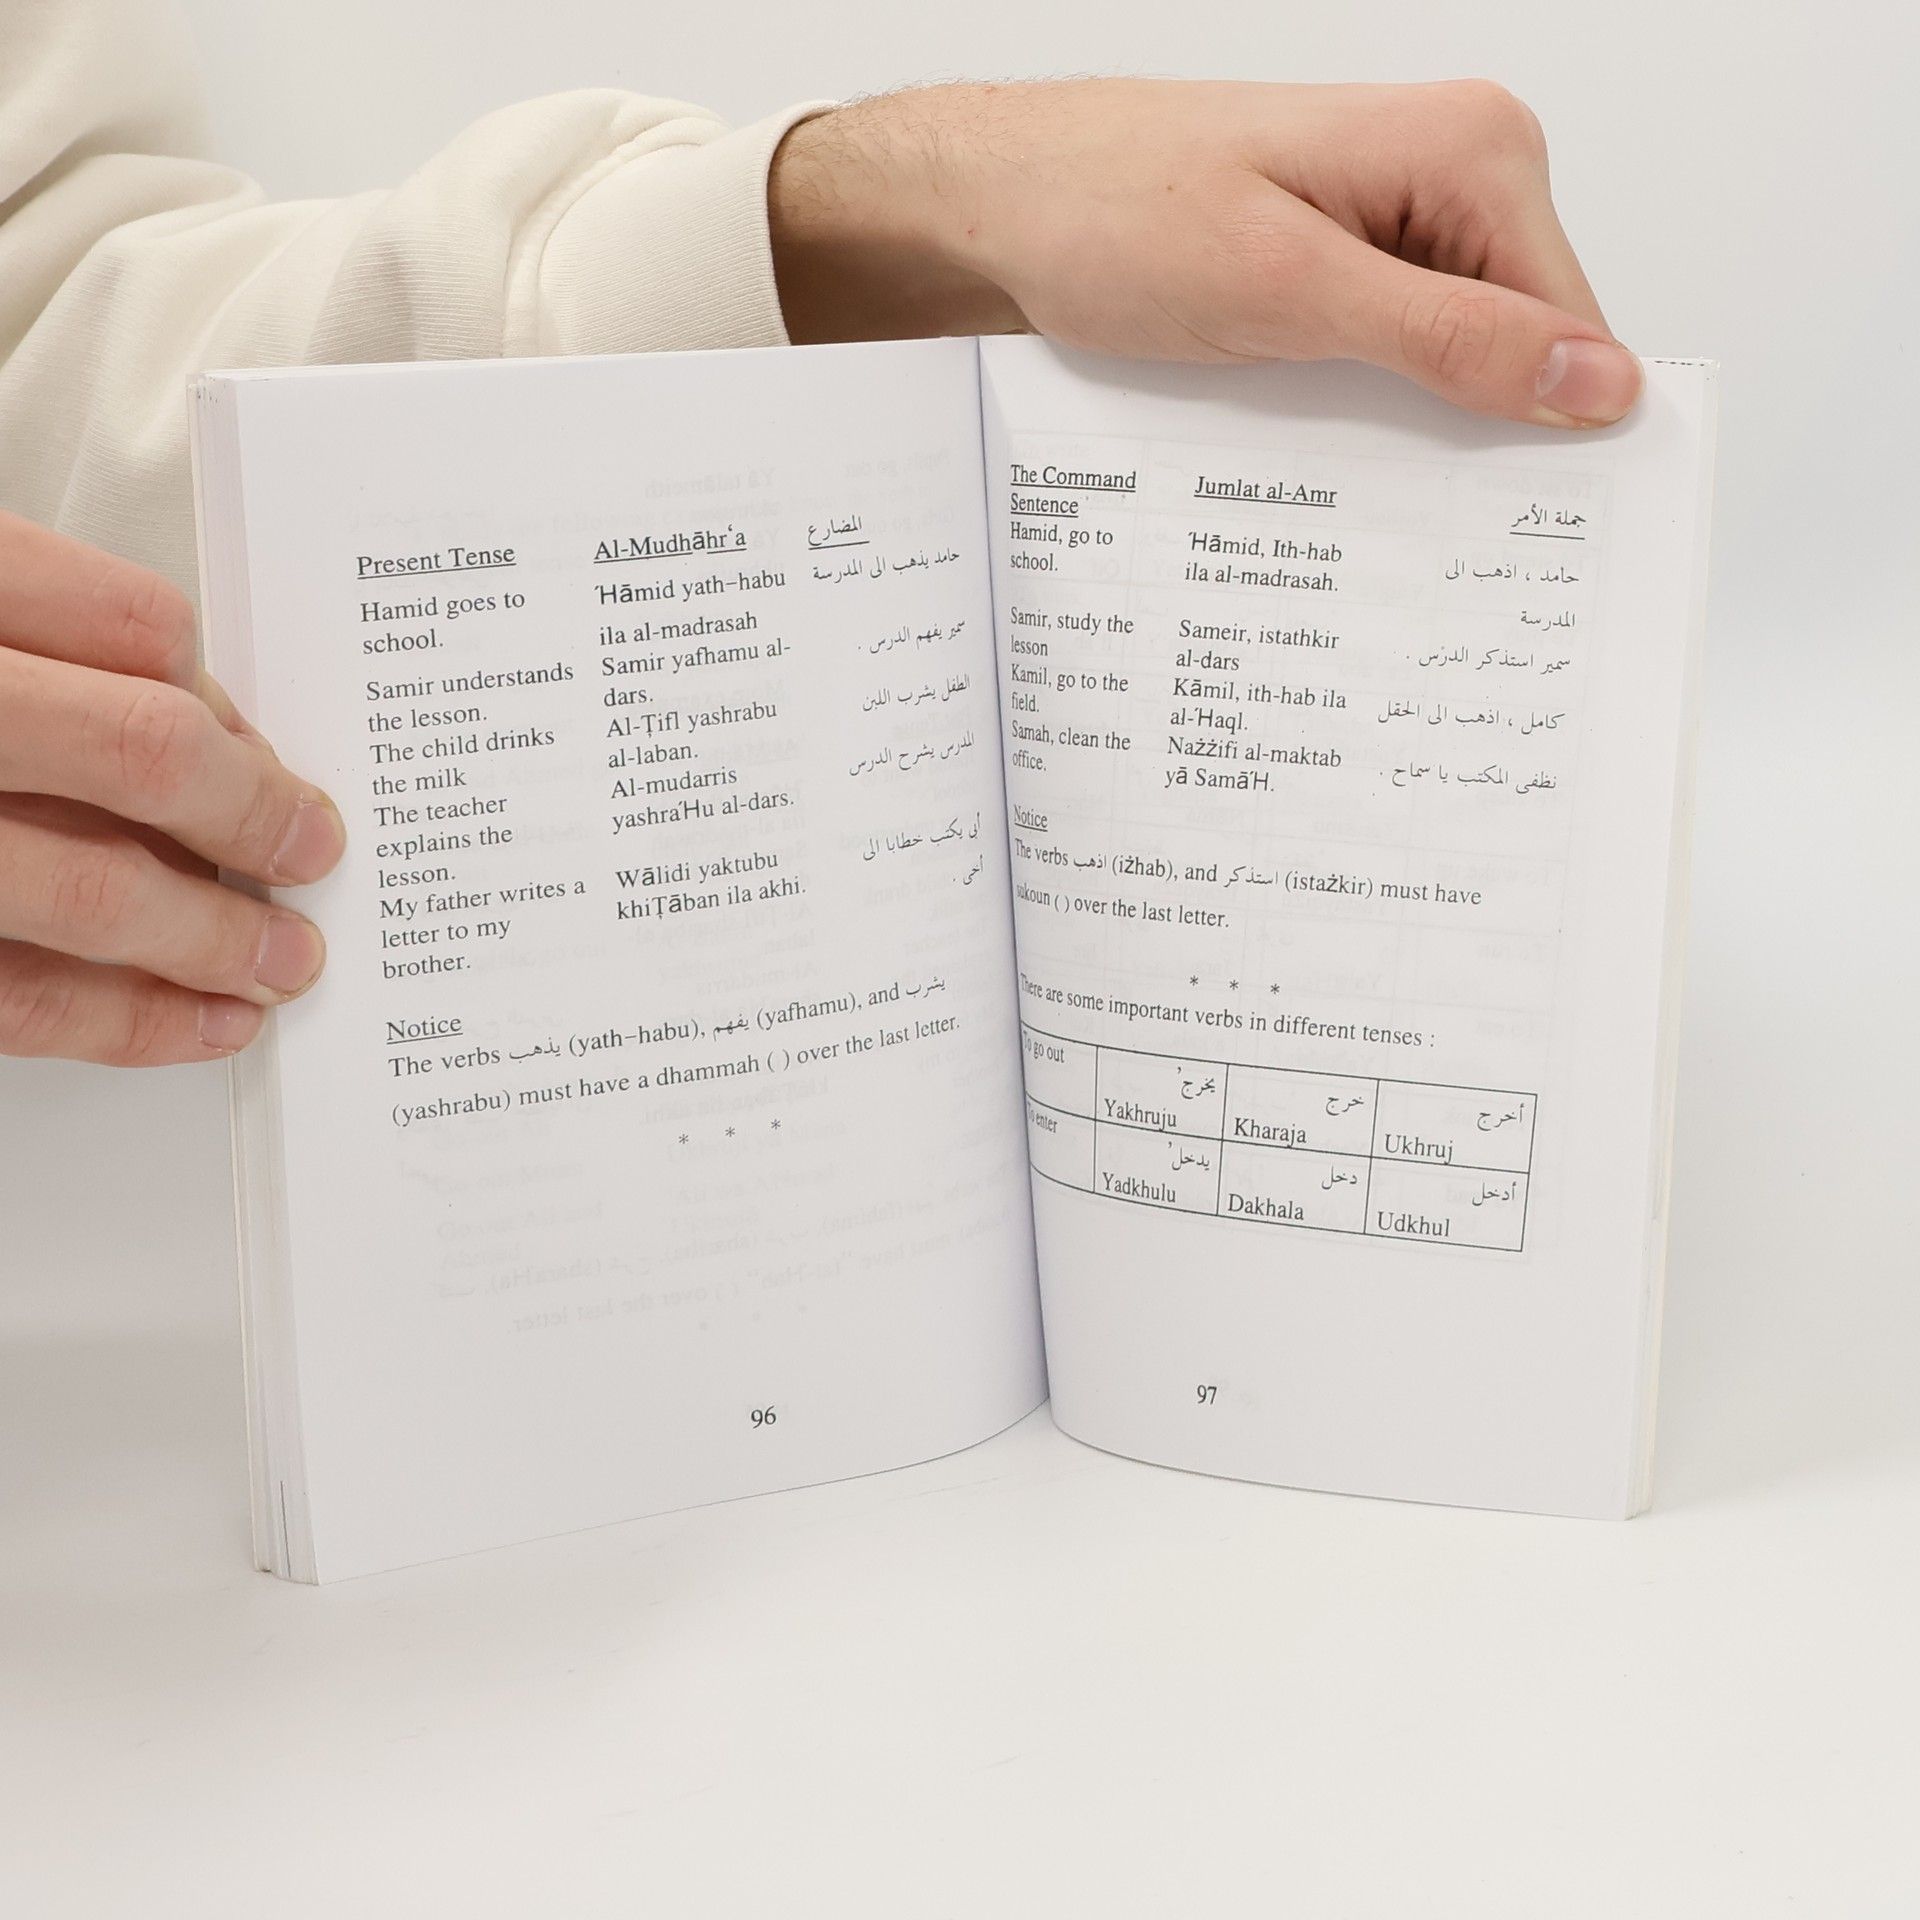 Present Tense Al-Mudhāhr‘a المضارع
Hamid goes to school. ‘Hāmid yath–habu ila al-madrasah حامد يذهب الى المدرسة
Samir understands the lesson. Samir yafhamu al-dars. سمير يفهم الدرس .
The child drinks the milk Al-Ţifl yashrabu al-laban. الطفل يشرب اللبن
The teacher explains the lesson. Al-mudarris yashra‘Hu al-dars. المدرس يشرح الدرس
My father writes a letter to my brother. Wālidi yaktubu khiŢāban ila akhi. أبى يكتب خطابا الى أخى .
Notice
The verbs يذهب (yath–habu), يفهم (yafhamu), and يشرب
(yashrabu) must have a dhammah ( ) over the last letter.
* * *
96
The Command Sentence Jumlat al-Amr جملة الأمر
Hamid, go to school. ‘Hāmid, Ith-hab ila al-madrasah. حامد ، اذهب الى المدرسة
Samir, study the lesson Sameir, istathkir al-dars سمير استذكر الدرْس .
Kamil, go to the field. Kāmil, ith-hab ila al-‘Haql. كامل ، اذهب الى الحقل
Samah, clean the office. Nażżifi al-maktab yā Samā‘H. نظفى المكتب يا سماح .
Notice
The verbs اذهب (iżhab), and استذكر (istażkir) must have
sukoun ( ) over the last letter.
* * *
There are some important verbs in different tenses :
To go out يخرجُ Yakhruju خرج Kharaja أخرج Ukhruj
To enter يدخلُ Yadkhulu دخل Dakhala أدخل Udkhul
97